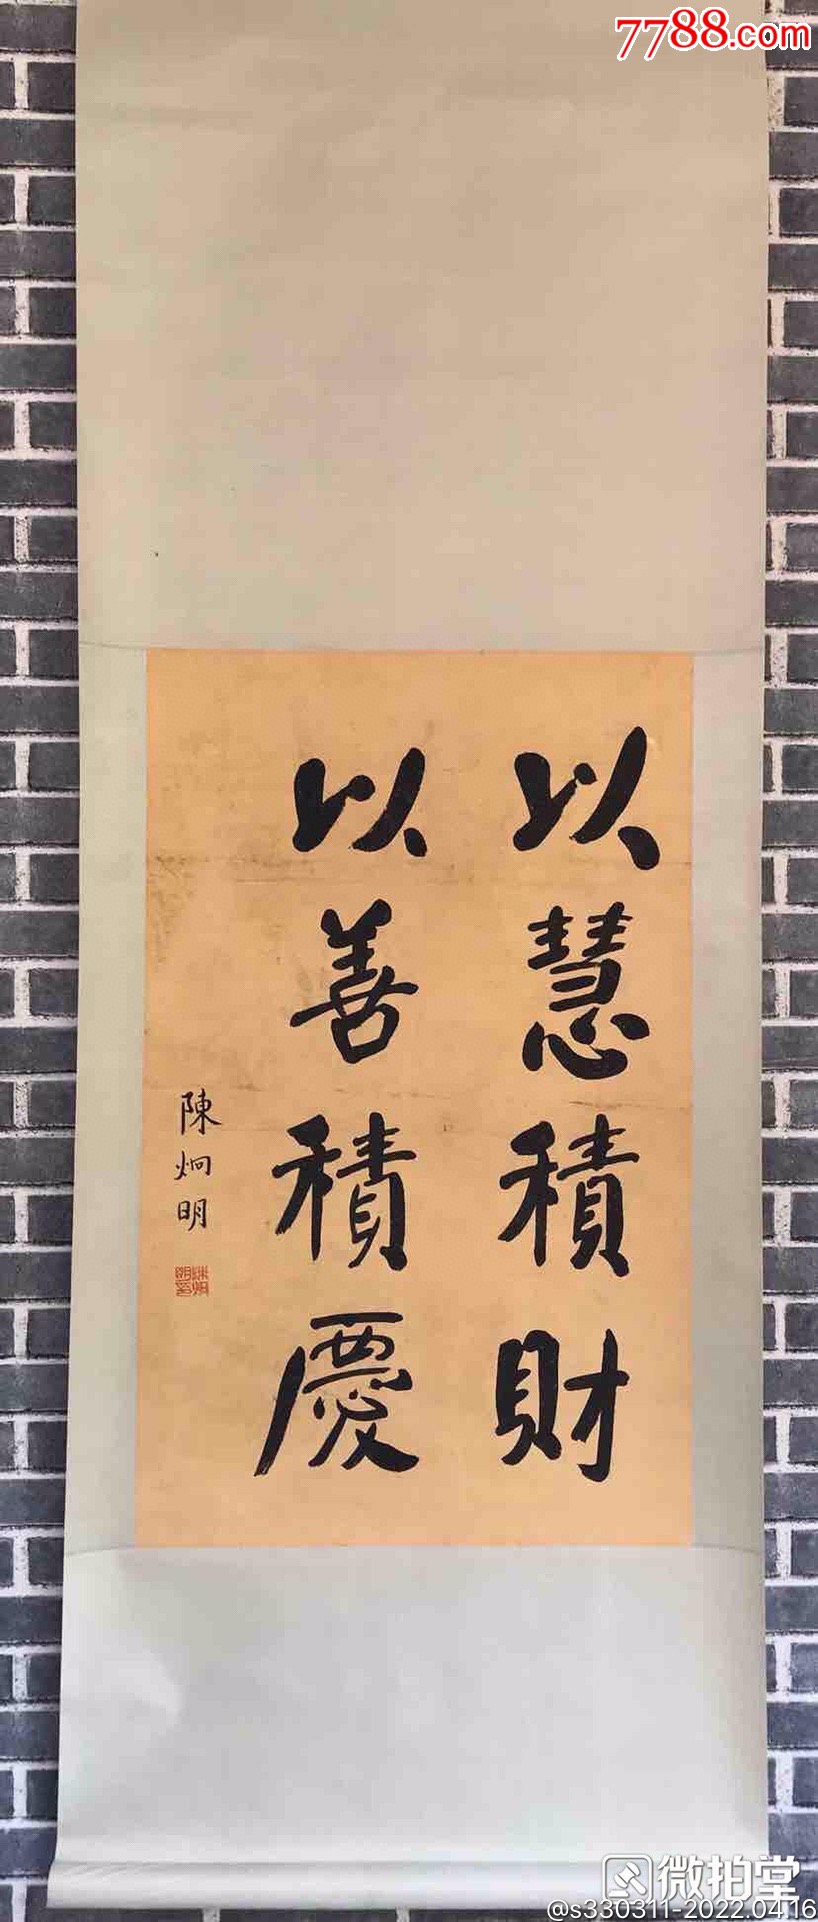 7788.com
以慧積財
以善積慶
陳炯明
微拍堂
@s330311-2022.04.16